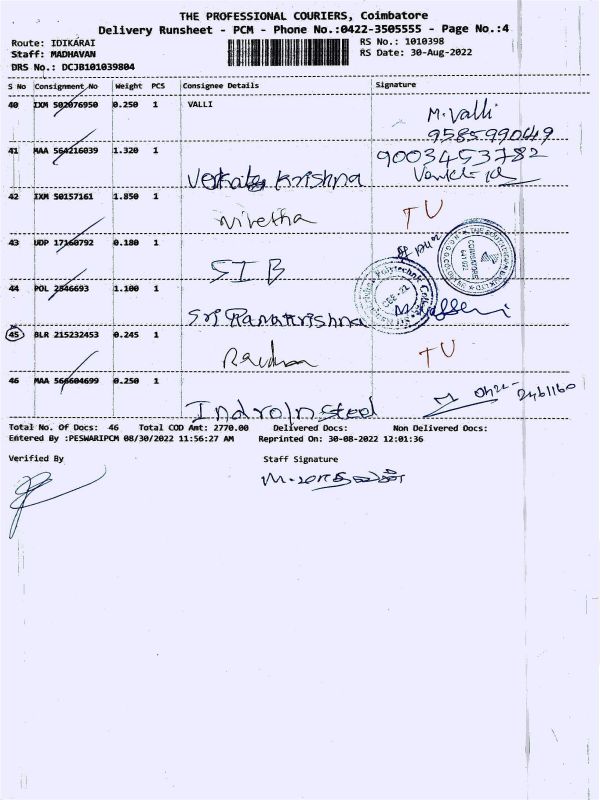 THE PROFESSIONAL COURIERS, Coimbatore
Delivery Runsheet - PCM - Phone No.:0422-3505555 - Page No.:4
Route: IDIKARAI
RS No.: 1010398
Staff: MADHAVAN
RS Date: 30-Aug-2022
DRS No.: DCJB101039804
S No Consignment No Weight PCS Consignee Details Signature
40 IXM 502076950 0.250 1 VALLI M. Valli
9585990449
41 MAA 564216039 1.320 1 9003453782
Krishna
42 IXM 50157161 1.850 1
Nivetha TU
43 UDP 17160792 0.180 1
SIB
44 POL 2546693 1.100 1
Sri Ramakrishna
45 BLR 215232453 0.245 1
TU
46 MAA 566604699 0.250 1
Total No. Of Docs: 46 Total COD Amt: 2770.00 Delivered Docs: Non Delivered Docs:
Entered By :PESWARIPCM 08/30/2022 11:56:27 AM Reprinted On: 30-08-2022 12:01:36
Verified By Staff Signature